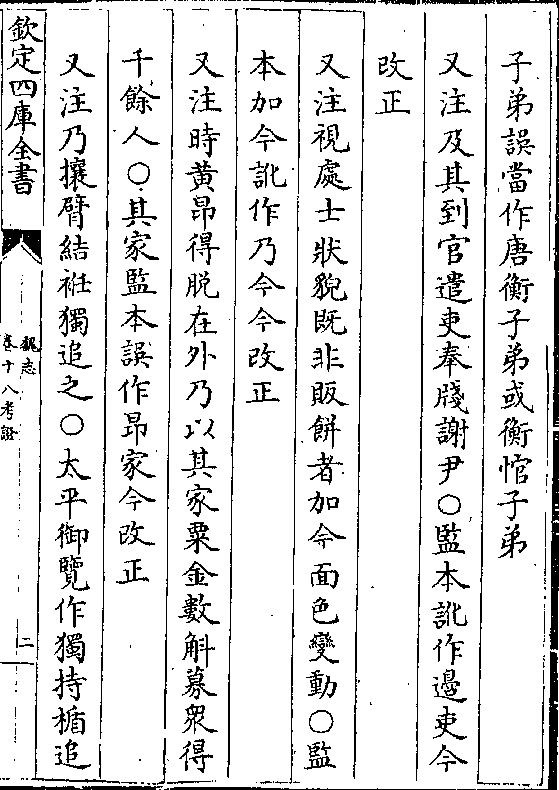 子弟誤當作唐衡子弟或衡悺子弟
又注及其到官遣吏奉牋謝尹○監本訛作邊吏今
改正
又注視處士狀貌旣非販餅者加今面色變動○監
本加今訛作乃今今改正
又注時黄昂得脱在外乃以其家粟金數斛募衆得
千餘人○其家監本誤作昂家今改正
又注乃攘臂結袵獨追之○太平御覽作獨持楯追
欽定四庫全書
魏志
卷十八考證
二